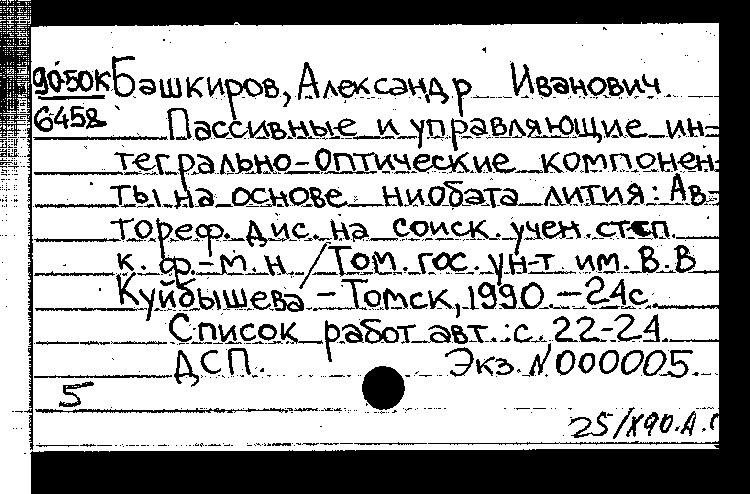 90-50К Башкиров, Александр Иванович
6458 Пассивные и управляющие ин-
тегрально-оптические компонен-
ты на основе ниобата лития: Ав-
тореф. дис. на соиск. учен. степ.
к. ф.-м. н / Том. гос. ун-т им. В. В
Куйбышева - Томск, 1990. - 24с.
Список работ авт.: с. 22-24.
ДСП. Экз. N000005.
5
25/X90. А.